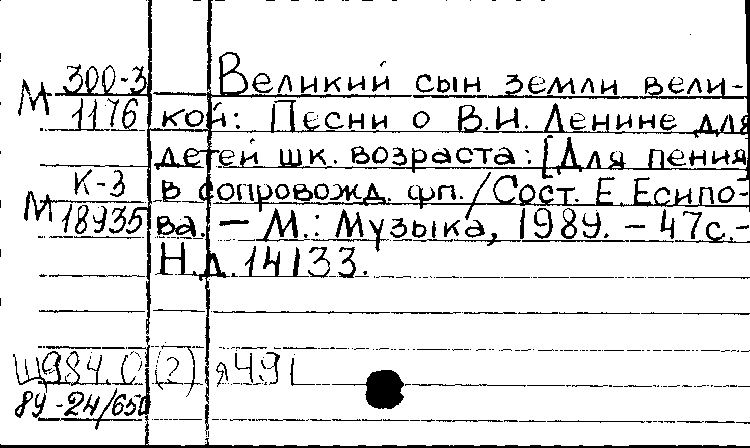 М 300-3 Великий сын земли вели-
1176 кой: Песни о В.И. Ленине для
детей шк. возраста: [Для пения
М К-3 в сопровожд. фп. / Сост. Е. Есипо-
18935 ва. – М.: Музыка, 1989. – 47с.-
Н.д. 14133.
Щ984.0(2)я491
89-24/650